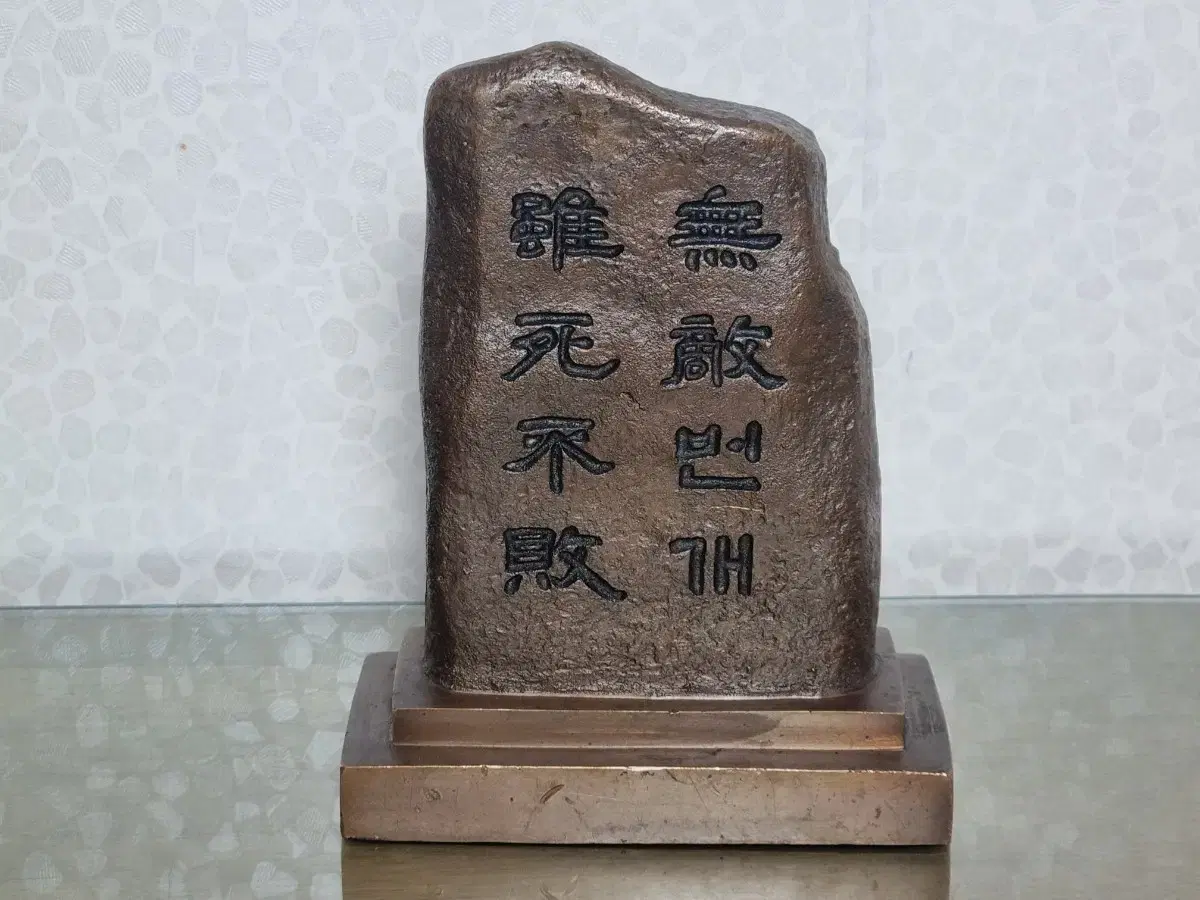 無敵번개
雖死不敗